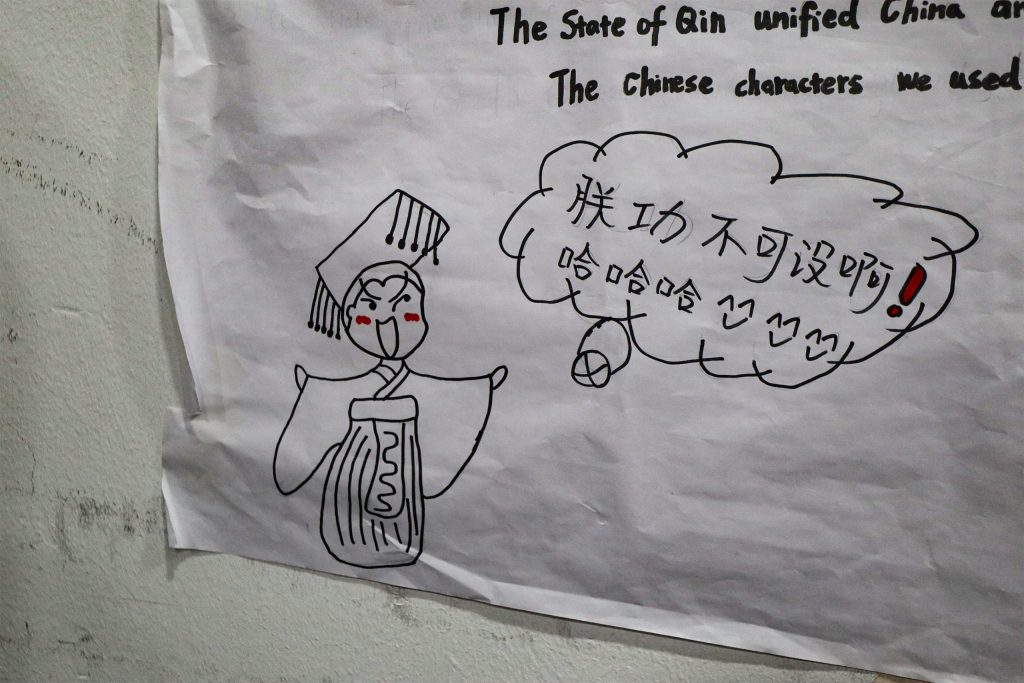 The State of Qin unified China an
The Chinese characters we used
朕功不可没啊!
哈哈哈